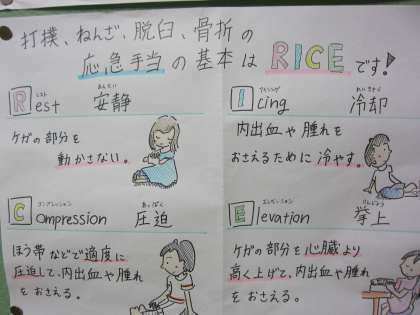 打撲、ねんざ、脱臼、骨折の
応急手当の基本はRICEです!
レスト
あんせい
Rest 安静
ケガの部分を
動かさない。
アイシング
れいきゃく
Icing 冷却
内出血や腫れを
おさえるために冷やす。
コンプレッション
あっぱく
Compression 圧迫
ほう帯などで適度に
圧迫して、内出血や腫れ
をおさえる。
エレベーション
きょじょう
Elevation 挙上
ケガの部分を心臓より
高く上げて、内出血や腫れ
をおさえる。